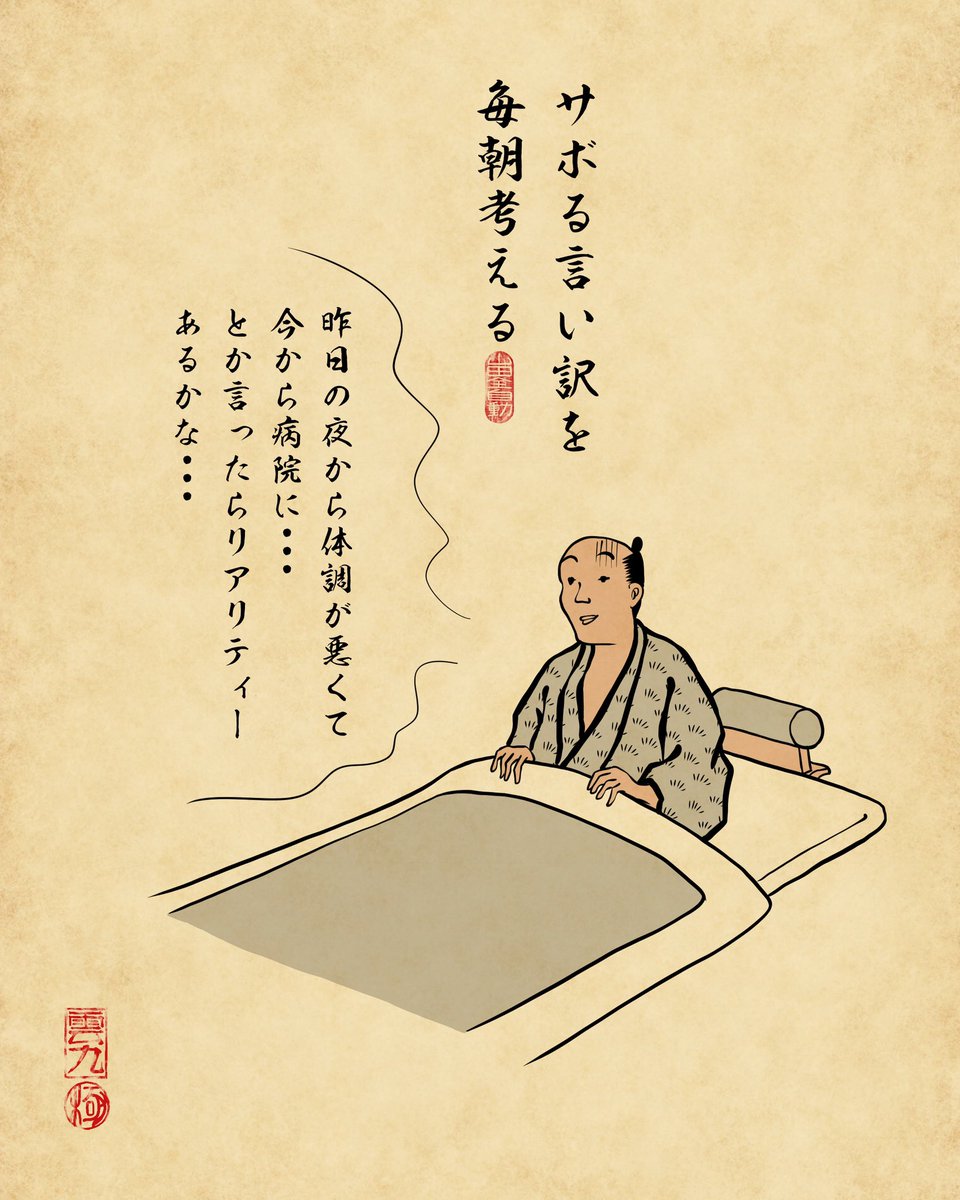 サボる言い訳を
毎朝考える
昨日の夜から体調が悪くて
今から病院に・・・
とか言ったらリアリティー
あるかな・・・